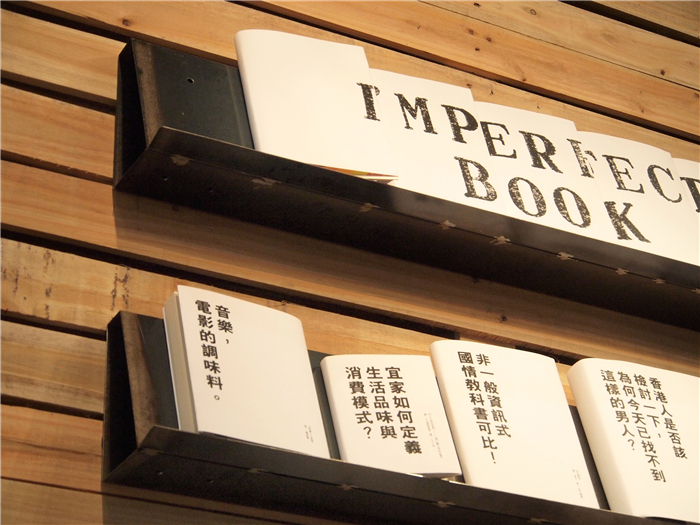 I'MPERFECT
BOOK
音樂，
電影的調味料。
宜家如何定義
生活品味與
消費模式？
非一般資訊式
國情教科書可比！
香港人是否該
檢討一下，
為何今天已找不到
這樣的男人？